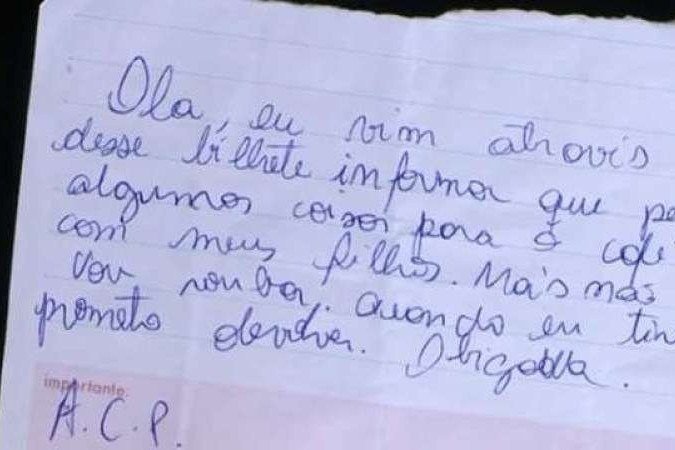 Ola, eu vim atravis
desse bilhete informa que pe
algumas coisas para o cafe
com meus filhos. Mais não
vou rouba. Quando eu tin
prometo devolver. Obigada.
importante:
A.C.P.